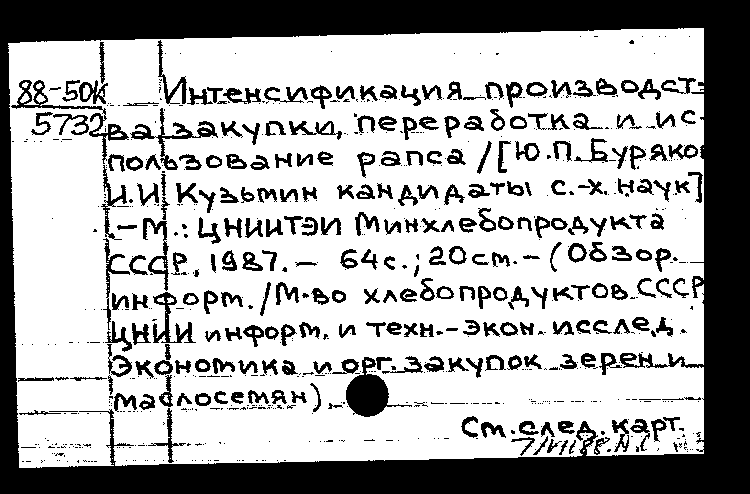 88-50К Интенсификация производст-
5732 ва, закупки, переработка и ис-
пользование рапса / [Ю.П. Буряков
И.И. Кузьмин кандидаты с.-х. наук]
.— М.: ЦНИИТЭИ Минхлебопродукта
СССР, 1987. — 64 с.; 20 см. — (Обзор.
информ. / М-во хлебопродуктов СССР,
ЦНИИ информ. и техн.-экон. исслед.
Экономика и орг. закупок зерен и
маслосемян).
См. след. карт.